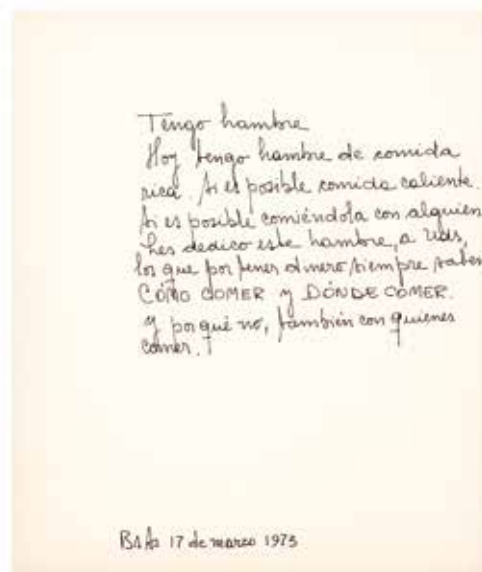 Tengo hambre
Hoy tengo hambre de comida
rica. Si es posible comida caliente.
Si es posible comiéndola con alguien
Les dedico este hambre, a Uds,
los que por tener dinero siempre saben
CÓMO COMER y DÓNDE COMER.
y por qué no, también con quienes
comer.
BsAs 17 de marzo 1975